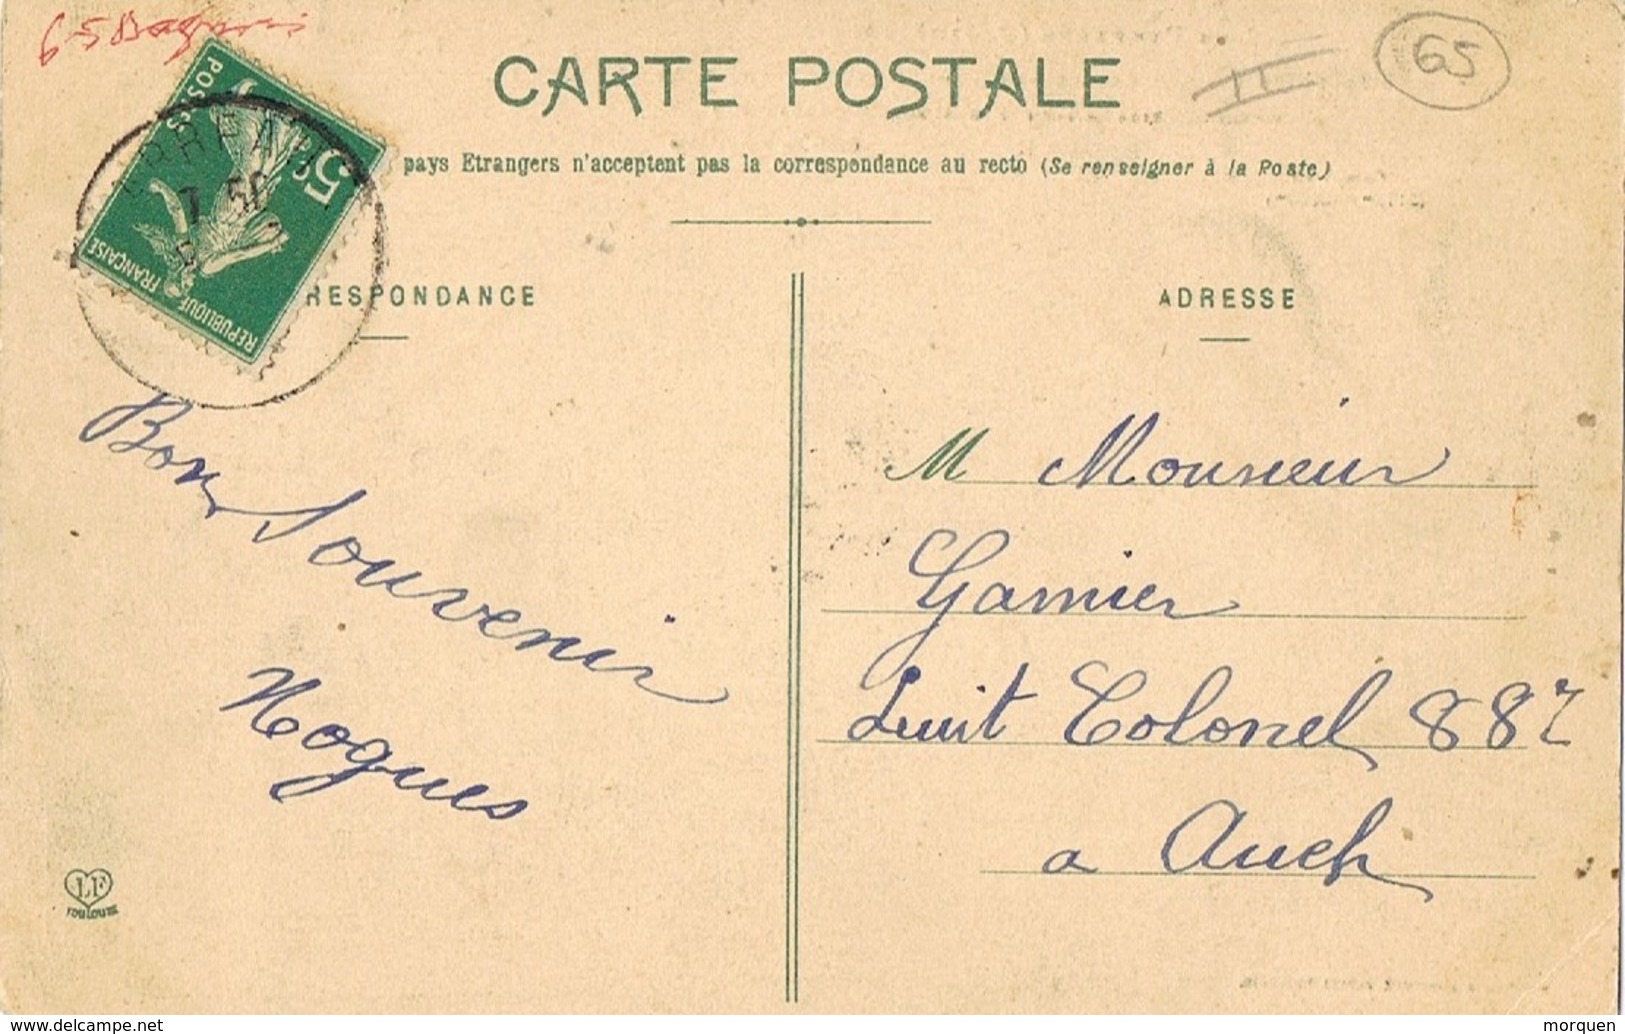 65
65
CARTE POSTALE
pays Etrangers n'acceptent pas la correspondance au recto (Se renseigner à la Poste)
POSTES
5
REPUBLIQUE FRANÇAISE
7 50
RESPONDANCE
Bon Souvenir
Nogues
LF
TOULOUSE
ADRESSE
M Monsieur
Garnier
Luit Colonel 88
a Auch
www.delcampe.net
morquen